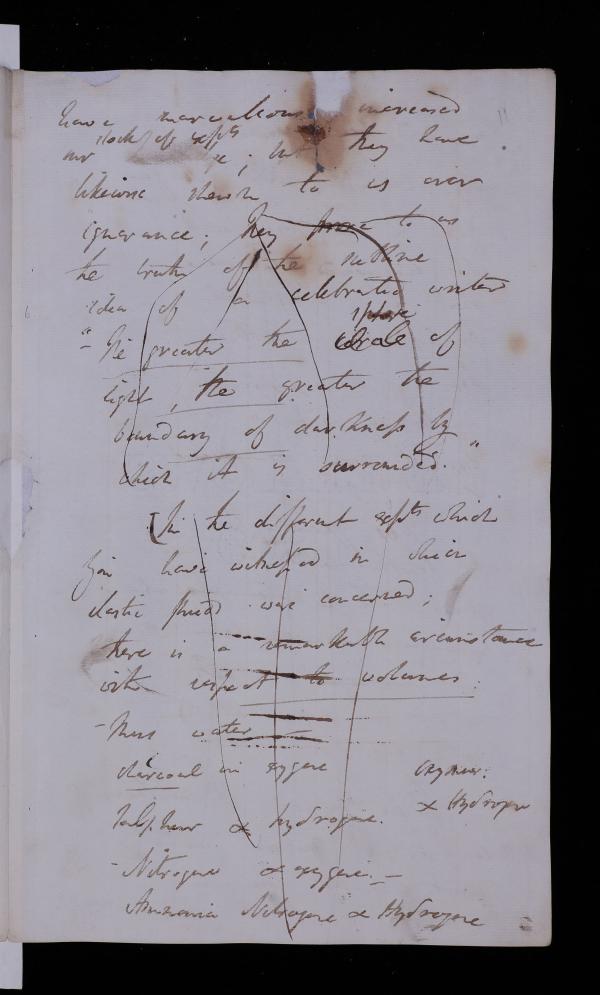 have marvellously increased
our stock of expts ; but they have
likewise shewn to us our
ignorance; they prove to us
the truth of the sublime
idea of a celebrated writer
"The greater the sphere of
light, the greater the
boundary of darkness by
which it is surrounded."
[In the different expts which
you have witnessed in which
elastic fluid was concerned;
there is a remarkable circumstance
with respect to volumes.
- Thus water
charcoal in oxygene
Sulphur & hydrogene. & Hydrogene
- Nitrogene & oxygene. -
Ammonia Nitrogene & Hydrogene